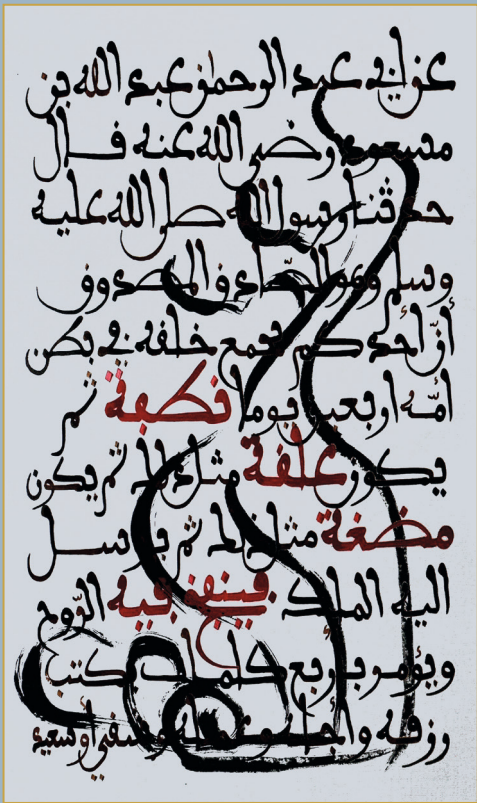 عن أبي عبد الرحمن عبد الله بن
مسعود رضي الله عنه قال
حدثنا رسول الله صلى الله عليه
وسلم وهو الصّادق المصدوق
أنّ أحدكم يجمع خلقه في بطن
أمّه اربعين يوما نطفة ثم
يكون علقة مثل ذلك ثم يكون
مضغة مثل ذلك ثم يرسل
اليه الملك فينفخ فيه الرّوح
ويؤمر بأربع كلمات بكتب
رزقه وأجله وعمله وشقي أو سعيد